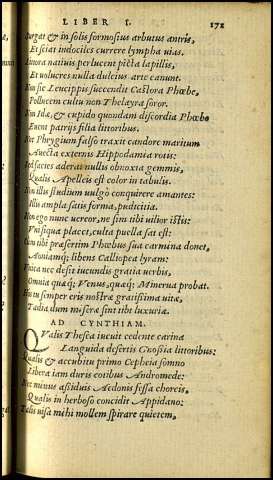 LIBER I. 172
Surgat & in solis formosius arbutus antris,
Et sciat indociles currere lympha uias.
Littora natiuis perlucent picta lapillis,
Et uolucres nulla dulcius arte canunt.
Non sic Leucippis succendit Castora Phœbe,
Pollucem cultu non Thelayra soror.
Non Idæ, & cupido quondam discordia Phœbo
Eueni patrijs filia littoribus.
Nec Phrygium falso traxit candore maritum
Auecta externis Hippodamia rotis:
Sed facies aderat nullis obnoxia gemmis,
Qualis Apelleis est color in tabulis.
Non illis studium uulgò conquirere amantes:
Illis ampla satis forma, pudicitia.
Non ego nunc uereor, ne sim tibi uilior istis:
Vni siqua placet, culta puella sat est:
Cum tibi præsertim Phœbus sua carmina donet,
Aoniamq; libens Calliopea lyram:
Vnica nec desit iucundis gratia uerbis,
Omnia quæq; Venus, quæq; Minerua probat.
His tu semper eris nostræ gratissima uitæ,
Tædia dum miseræ sint tibi luxuriæ.
AD CYNTHIAM.
QValis Thesea iacuit cedente carina
Languida desertis Gnosia littoribus:
Qualis & accubuit primo Cepheia somno
Libera iam duris cotibus Andromede:
Nec minus assiduis Aedonis fessa choreis,
Qualis in herboso concidit Appidano:
Talis uisa mihi mollem spirare quietem,